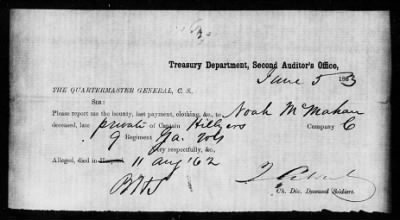 Treasury Department, Second Auditor's Office,
June 5 1863
THE QUARTERMASTER GENERAL, C. S.
SIR:
Please report me the bounty, last payment, clothing, &c., to Noah McMahan
deceased, late private of Captain Hillyers Company C
9 Regiment Ga. Vols
Very respectfully, &c.
Alleged, died in Hospital, 11 Aug '62
Ch. Div. Deceased Soldiers.